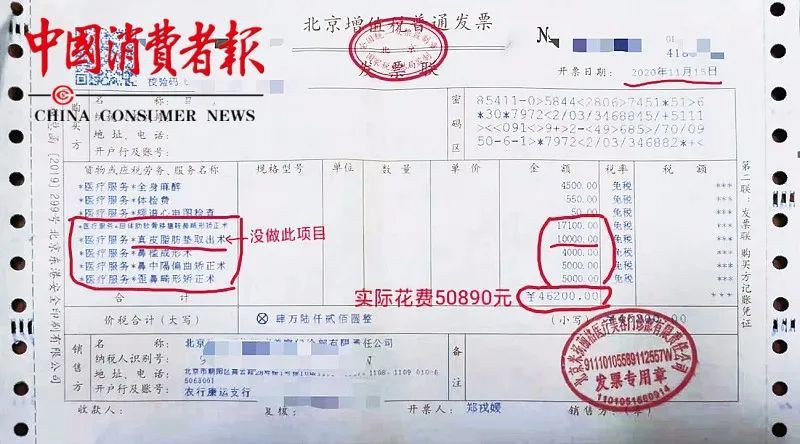 中國消費者報
CHINA CONSUMER NEWS
北京增值税普通发票
发票联
北京
№
开票日期: 2020年11月15日
校验码
购买方
名
称:
地址, 电话:
开户行及账号:
密码区
85411-0>5844<2806>7451*51>6
*30*7972<2/03/3468845/+5111
><<091<>+9+>2-<49>685>/70/09
50-6-1>*7972<2/03/346882*+<
货物或应税劳务、服务名称 规格型号 单位 数量 单价 金额 税率 税额
*医疗服务*全身麻醉 4500.00 免税 ***
*医疗服务*体检费 550.00 免税 ***
*医疗服务* 免税 ***
17100.00 免税 ***
*医疗服务*真皮脂肪垫取出术 10000.00 免税 ***
没做此项目
*医疗服务*鼻槛成形术 4000.00 免税 ***
*医疗服务*鼻中隔偏曲矫正术 5000.00 免税 ***
*医疗服务*歪鼻畸形矫正术 5000.00 免税 ***
合计 ¥46200.00 ***
实际花费50890元
价税合计(大写) ⊗肆万陆仟贰佰圆整 (小写)
销售方
名
称:
北京
有限责任公司
纳税人识别号:
地址, 电话:
开户行及账号: 农行康运支行
备注
收款人: 复核: 开票人: 销售方: (章)
第二联:发票联 购买方记账凭证
911101055891125577W
发票专用章